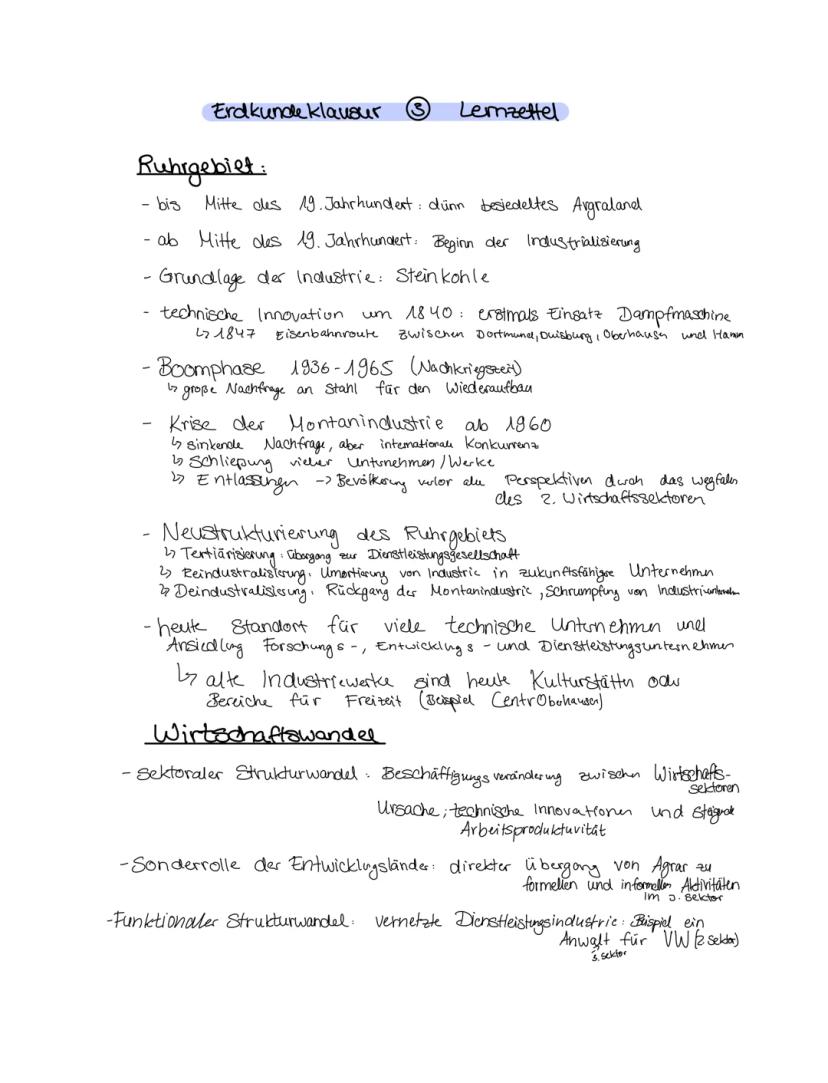 Erdkundeklausur ③ Lernzettel
Ruhrgebiet:
- bis Mitte des 19. Jahrhundert: dünn besiedeltes Argraland
- ab Mitte des 19. Jahrhundert: Beginn der Industrialisierung
- Grundlage der Industrie: Steinkohle
- technische Innovation um 1840: erstmals Einsatz Dampfmaschine
↳ 1847 Eisenbahnroute zwischen Dortmund, Duisburg, Oberhausen und Hamm
- Boomphase 1936-1965 (Nachkriegszeit)
↳ große Nachfrage an Stahl für den Wiederaufbau
- Krise der Montanindustrie ab 1960
↳ sinkende Nachfrage, aber internationale Konkurrenz
↳ Schließung vieler Unternehmen/Werke
↳ Entlassungen -> Bevölkerung verlor alle Perspektiven durch das wegfallen
des 2. Wirtschaftssektoren
- Neustrukturierung des Ruhrgebiets
↳ Tertiärisierung: Übergang zur Dienstleistungsgesellschaft
↳ Reindustralisierung: Umortierung von Industrie in zukunftsfähigere Unternehmen
↳ Deindustralisierung: Rückgang der Montanindustrie, Schrumpfung von Industrieunternehmen
- heute Standort für viele technische Unternehmen und
Ansiedlung Forschungs-, Entwicklungs- und Dienstleistungsunternehmen
↳ alte Industriewerke sind heute Kulturstätten oder
Bereiche für Freizeit (Beispiel CentrO Oberhausen)
Wirtschaftswandel
- Sektoraler Strukturwandel: Beschäftigungsveränderung zwischen Wirtschafts-
sektoren
Ursache: technische Innovationen und
Arbeitsproduktuvität
- Sonderrolle der Entwicklungsländer: direkter übergang von Agrar zu
formellen und informellen Aktivitäten
im 3. Sektor
- Funktionaler Strukturwandel: vernetzte Dienstleistungsindustrie: Beispiel ein
Anwalt für VW (2 Sektor)
3. Sektor